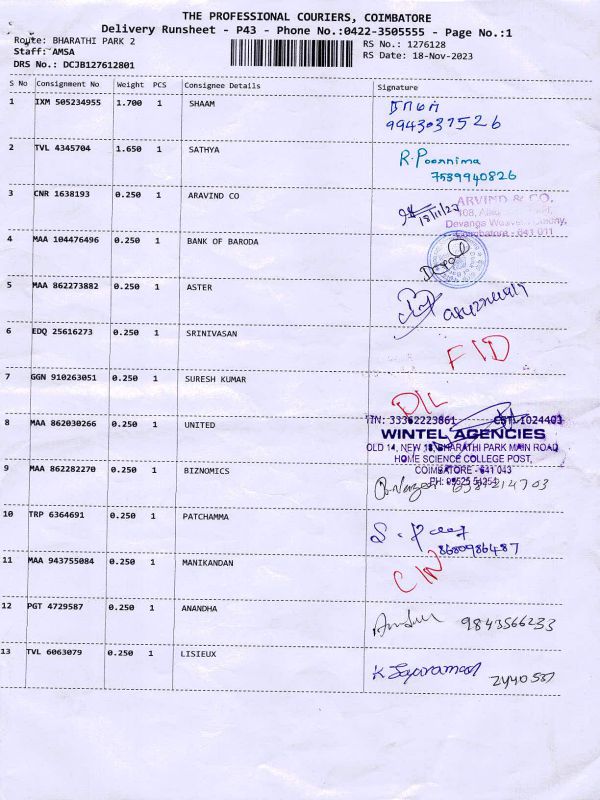 THE PROFESSIONAL COURIERS, COIMBATORE
Delivery Runsheet - P43 - Phone No.:0422-3505555 - Page No.:1
Route: BHARATHI PARK 2
RS No.: 1276128
Staff: AMSA
RS Date: 18-Nov-2023
DRS No.: DCJB127612801
S No Consignment No Weight PCS Consignee Details Signature
1 IXM 505234955 1.700 1 SHAAM
9943037526
2 TVL 4345704 1.650 1 SATHYA R. Poornima
7539940826
3 CNR 1638193 0.250 1 ARAVIND CO 18/11/23
ARVIND & CO.
Devanga
Coimbatore - 641 011
4 MAA 104476496 0.250 1 BANK OF BARODA
5 MAA 862273882 0.250 1 ASTER
6 EDQ 25616273 0.250 1 SRINIVASAN FID
7 GGN 910263051 0.250 1 SURESH KUMAR D/L
8 MAA 862030266 0.250 1 UNITED
TIN: 33362223861 CST: 1024403
WINTEL AGENCIES
OLD 14, NEW 18, BHARATHI PARK MAIN ROAD
HOME SCIENCE COLLEGE POST,
COIMBATORE - 641 043
9 MAA 862282270 0.250 1 BIZNOMICS
10 TRP 6364691 0.250 1 PATCHAMMA
8680986487
11 MAA 943755084 0.250 1 MANIKANDAN
12 PGT 4729587 0.250 1 ANANDHA 9843566233
13 TVL 6063079 0.250 1 LISIEUX